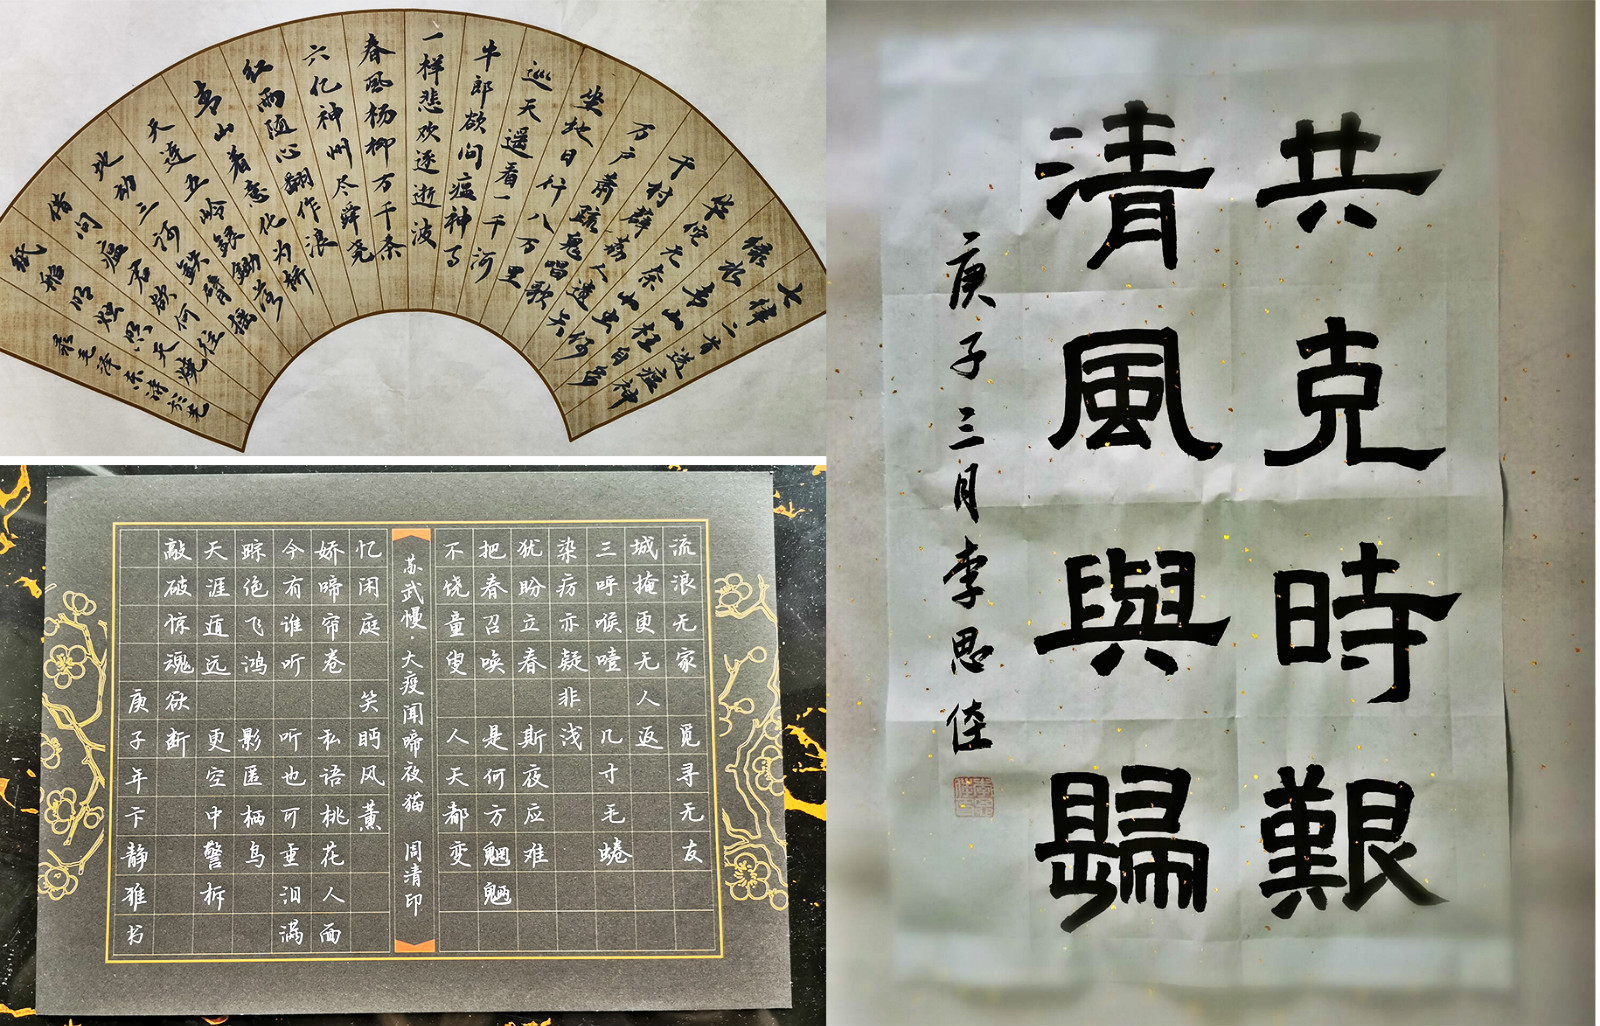 七律二首送瘟神
绿水青山枉自多
华佗无奈小虫何
千村薜荔人遗矢
万户萧疏鬼唱歌
坐地日行八万里
巡天遥看一千河
牛郎欲问瘟神事
一样悲欢逐逝波
春風杨柳万千条
六亿神州尽舜尧
红雨随心翻作浪
青山着意化为桥
天连五岭銀鋤落
地动三河鉄臂摇
借问瘟君欲何往
纸船明烛照天烧
录毛泽东诗
流浪无家 觅寻无友
城掩更无人返
三呼喉噎 几寸毛蜷
染疠亦疑非浅
犹盼立春 斯夜应难
把春召唤 是何方魍魉
不饶童叟 人天都变
苏武慢·大疫闻啼夜猫 周清印
忆闲庭 笑眄风薰
娇啼帘卷 私语桃花人面
今有谁听 听也可垂泪满
踪绝飞鸿 影匿栖鸟
天涯遁远 更空中警柝
敲破惊魂欲断
庚子年卞静雅书
共克時艱
清風與歸
庚子三月李思佳